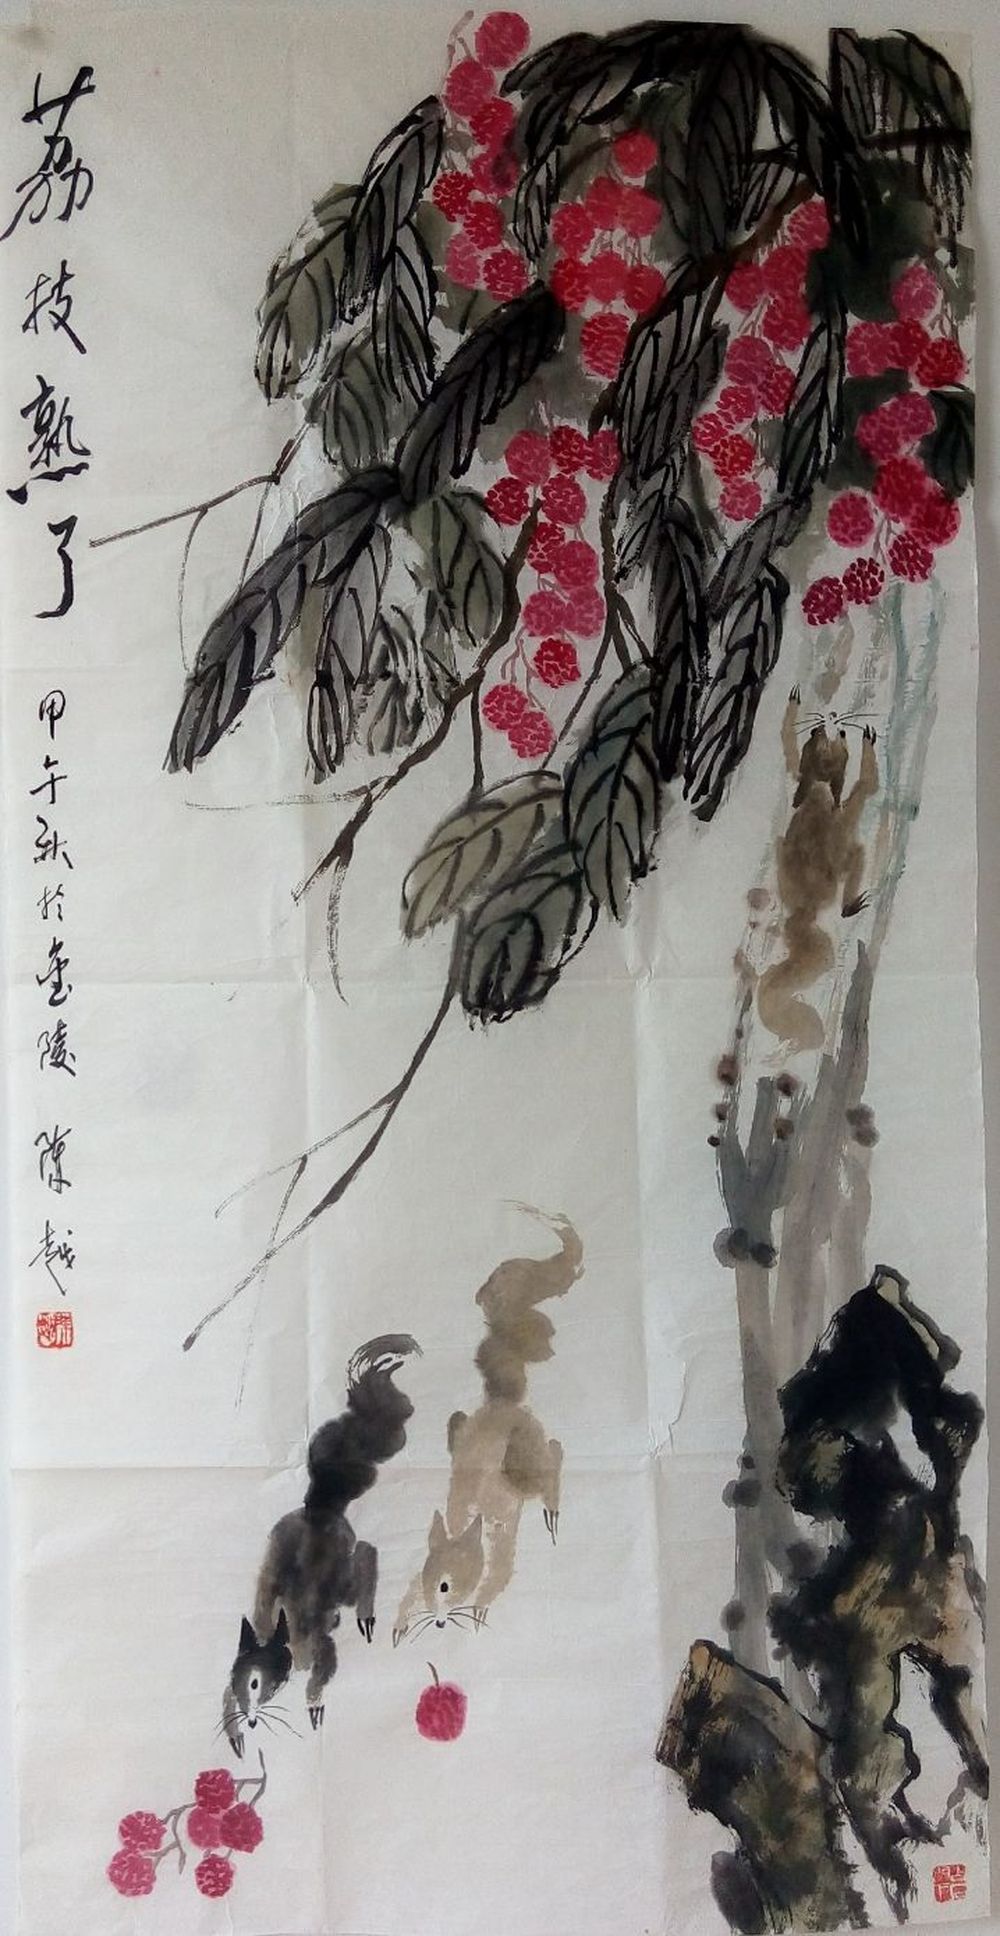 荔枝熟了
甲午秋於金陵 陈越